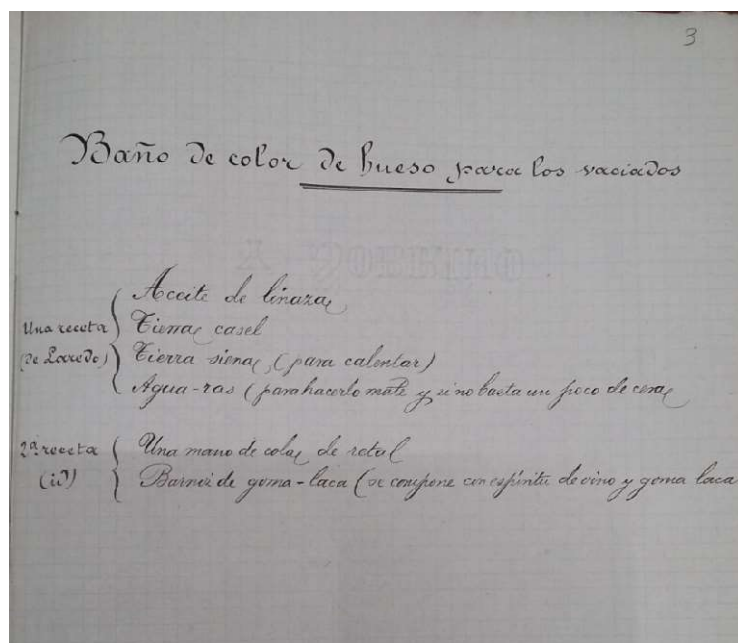 3
Baño de color de hueso para los vaciados
Aceite de linaza
Una receta
Tierra casel
(de Laredo)
Tierra siena, (para calentar)
Agua-ras (para hacerlo mate y si no basta un poco de cera
2ª receta
Una mano de cola de retal
(id)
Barniz de goma-laca (se compone con espíritu de vino y goma laca